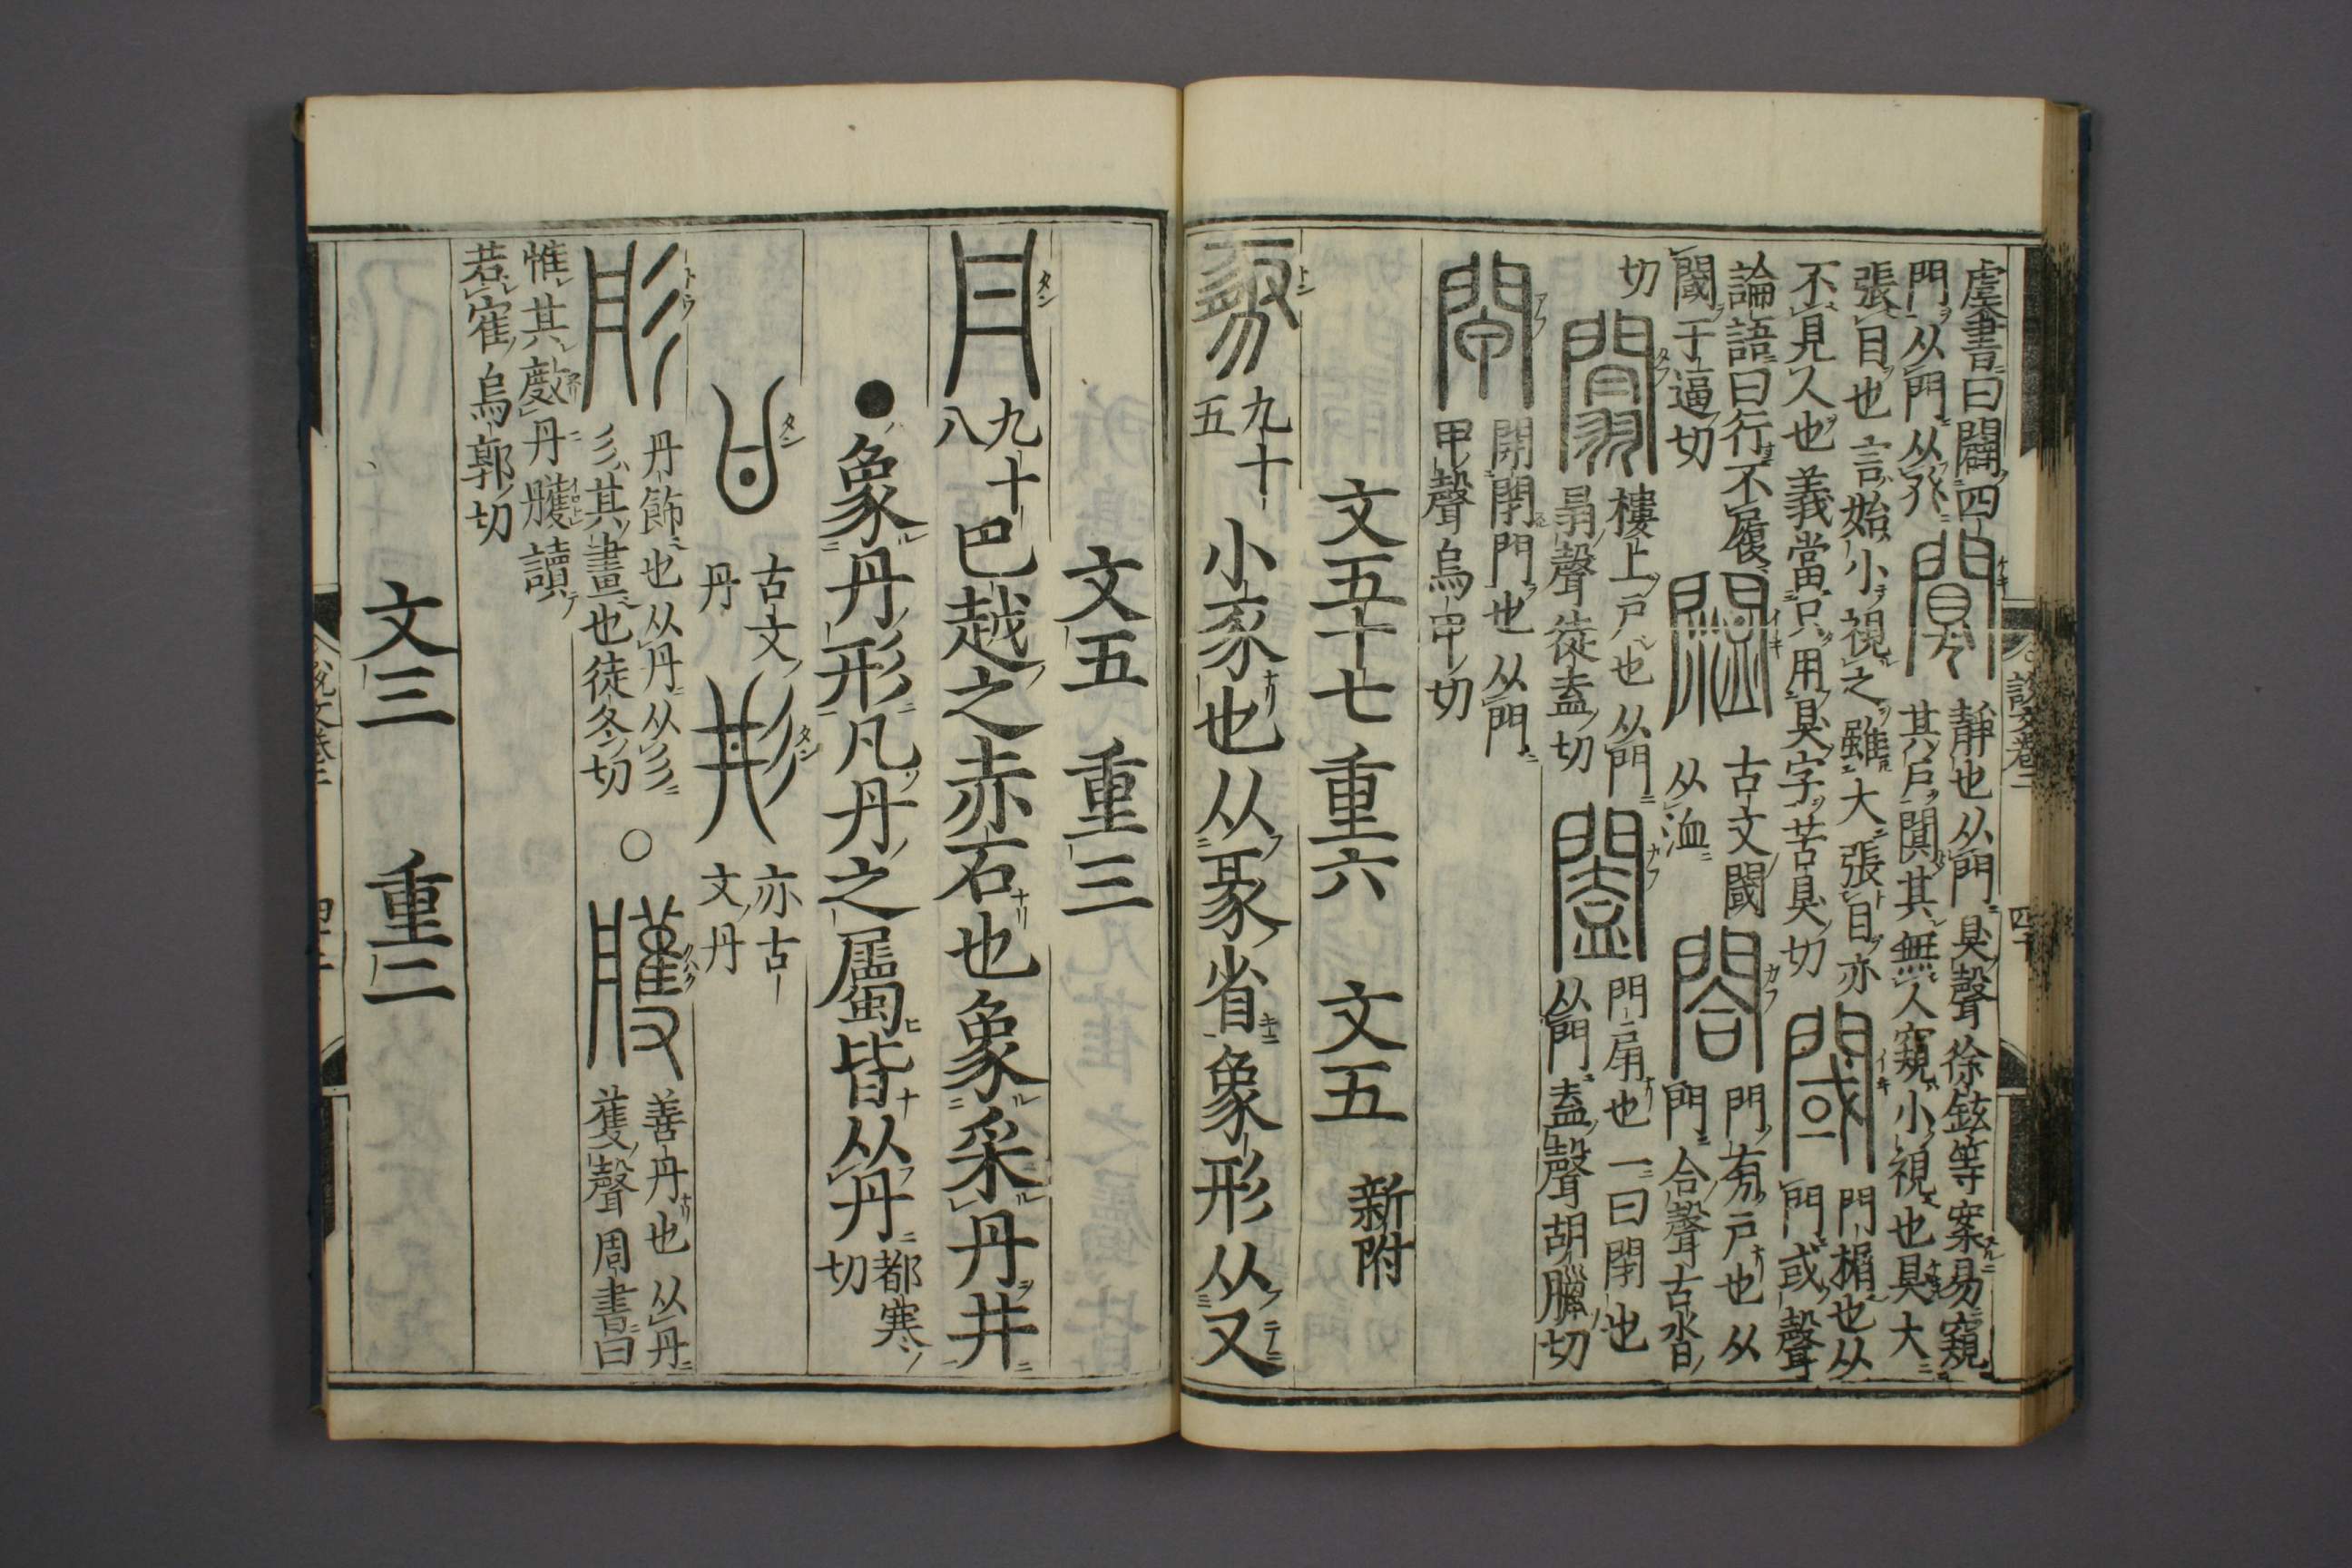 説文卷二 四十
虞書曰闢四
門从門从𠬜
闃
靜也从門狊聲徐鉉等案易窺
其戶闃其無人窺小視也狊大
張目也言始小視之雖大張目亦
不見人也義當只用狊字苦狊切
閾
門榍也从
門或聲
論語曰行不履
閾于逼切
𨵿
古文閾
从洫
閤
門旁戶也从
門合聲古沓
切
闒
樓上戶也从門
𦐇聲徒盍切
闔
門扇也一曰閉也
从門盍聲胡臘切
閘
開閉門也从門
甲聲烏甲切
文五十七 重六 文五 新附
豚 九十五 小豕也从彖省象形从又
文五 重三
丹 九十八 巴越之赤石也象采丹井
●象丹形凡丹之屬皆从丹 都寒切
古文丹
亦古文丹
彤
丹飾也从丹从彡
彡其畫也徒冬切
○
雘
善丹也从丹
蒦聲周書曰
惟其𢾖丹雘讀
若寉烏郭切
文三 重二